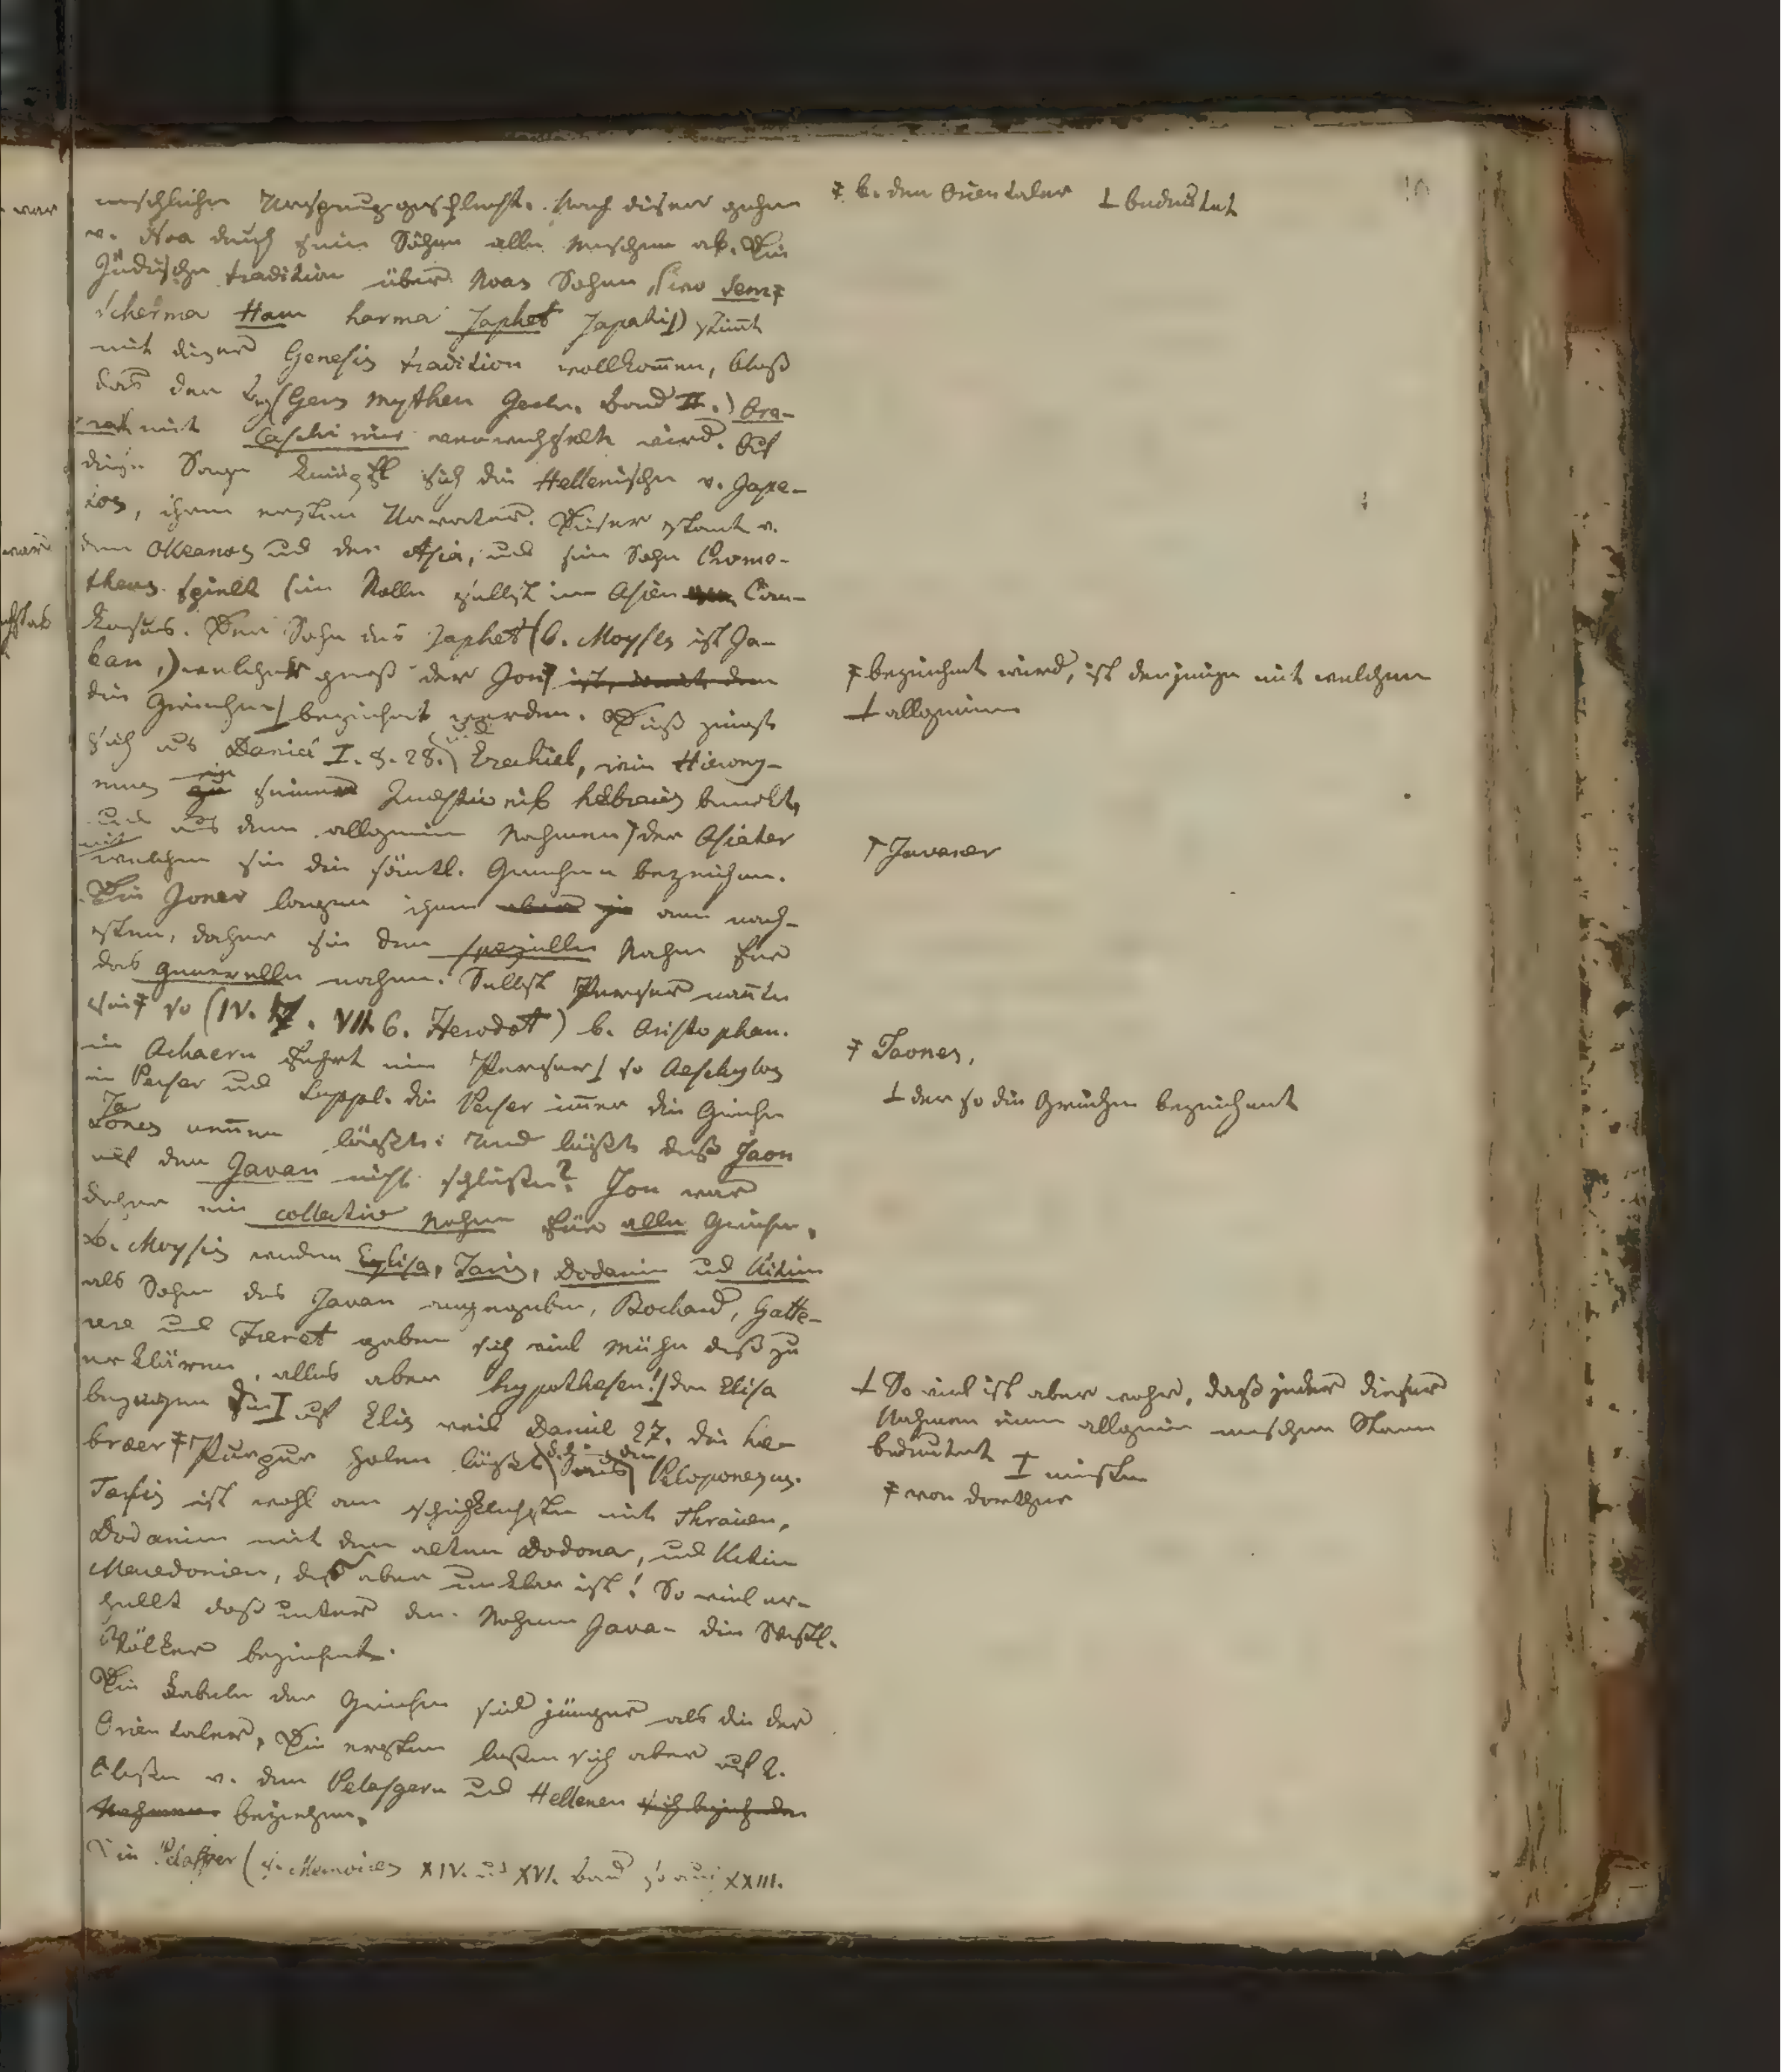 menschlichen Ursprung geschlecht. Nach dieser gehen
v. Noa durch seine Söhne alle Menschen ab. Die
Jüdische tradition über Noas Söhne, (wo Sem ‡
Scherma Ham harma Japhet Japati ⊥) stimt
mit dieser Genesis tradition vollkommen, bloß
das den (Gers Mythen Gesch. Band II.) Ara-
rat mit Caschimir verwechselt wird. Auf
diese Sage knüpft sich die Hellenische v. Jape-
tos, ihrem ersten Urvater. Dieser stamt v.
dem Okeanos und der Asia, und sein Sohn Prome-
theus spielt seine Rolle selbst im Asien Cau-
kasus. Der Sohn des Japhet (b. Moyses ist Ja-
ban,) welcher der Jon ‡ ist, damit den
die Griechen ⊥ bezeichnet werden. Dieß zeigt
sich aus Daniel I. 8. 28.) Ezechiel, wie Hierony-
mus in seinen Quaestionib hebraeis bemerkt,
und aus dem allgemein Nahmen † der Asiater
mit welchem sie die sämtl. Griechen bezeichen.
Die Joner lagen ihnen aber am näch-
sten, daher sie den speziellen Nahmen für
das generelle nahmen. Selbst Perser nanten
sie ‡ so (IV. VII. 6. Herodot) b. Aristophan.
in Acharn führt ein Perser ⊥ so Aeschylos
in Perser und Suppl. die Perser immer die Griechen
Jaones nennen läßt: und läßt dieß Jaon
auf den Javan nicht schließen? Jon war
daher ein collectiv Nahme für alle Griechen.
B. Moysis werden Eylisa, Tarsis, Dodanim und Kitim
als Söhne des Javan angegeben, Bochard, Gatte-
rer und Freret gaben sich viel Mühe dieß zu
erklären, alles aber hypothesen! ⊥ den Elisa
bezogen die I auf Elis weil Daniel 27. die He-
bräer ‡ Purpur holen läßt Peloponesus.
Tarsis ist wohl am schicklichsten mit Thracien,
Dodanim mit dem alten Dodona, und Kitim
Macedonien, dieß aber unklar ist! So viel er-
hellt daß unter dem Nahmen Java- die Westl.
Völker bezeichnet.
Die Fabeln der Griechen sind jünger als die der
Orientaler. Die ersten laßen sich aber auf 2.
Claßen v. den Pelasgern und Hellenen sich beziehenden
Nahmen beziehen.
Die Pelasger (s. Memoires XIV. und XVI. Band so auch XXIII.
‡ b. den Orientaler ⊥ bedeutet
‡ bezeichnet wird, ist derjenige mit welchem
⊥ allgemein
† Javaner
‡ Jaones,
⊥ der so die Griechen bezeichnet
⊥ So viel ist aber wahr, daß jeder dieser
Nahmen einen allgemein Stamm
bedeutet I meisten
‡ von dorther
10